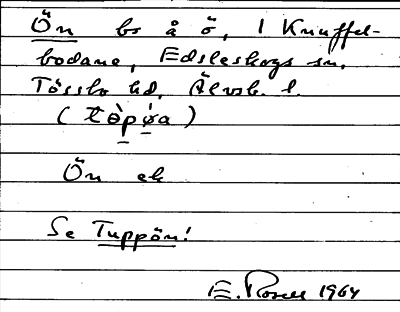 Ön bs å ö, 1 Knuffel-
bodane, Edsleskogs sn.
Tössbo hd, Älvsb. l.
(tòpøa)
Ön ek
Se Tuppön!
E. Rosell 1964